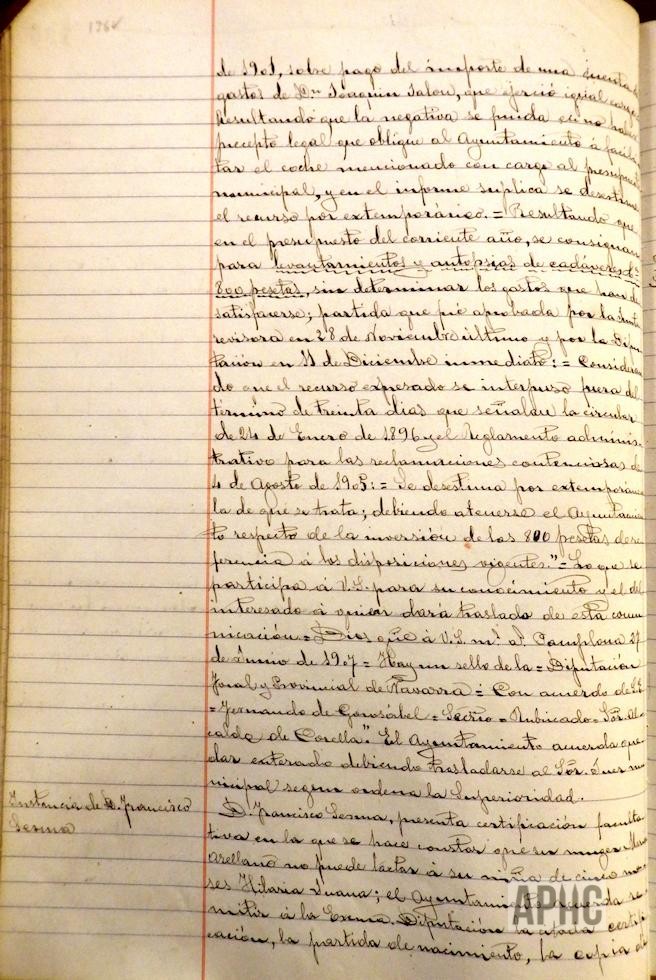 de 1901, sobre pago del importe de una cuenta de
gastos de Dn Joaquin Salou, que ejerció igual cargo
Resultando que la negativa se funda en no haber
precepto legal que obligue al Ayuntamiento á facili
tar el coche mencionado con cargo al presupuesto
municipal, y en el informe suplica se desestime
el recurso por extemporáneo. = Resultando que
en el presupuesto del corriente año, se consignan
para levantamientos y autopsias de cadáveres
800 pesetas, sin determinar los gastos que han de
satisfacerse; partida que fué aprobada por la Junta
revisora en 28 de Noviembre último y por la Dipu
tación en 11 de Diciembre inmediato: = Consideran
do que el recurso expesado se interpuso fuera del
término de treinta dias que señalan la circular
de 24 de Enero de 1896 y el Reglamento adminis
trativo para las reclamaciones contenciosas de
4 de Agosto de 1905: = Se desestima por extemporánea
la de que se trata; debiendo atenerse el Ayuntamien
to respecto de la inversión de las 800 pesetas de re
ferencia á las disposiciones vigentes." = Lo que se
participa á V.S. para su conocimiento y el del
interesado á quien dará traslado de esta comu
nicación = Dios gue á V.S. ms. as. Pamplona 27
de Junio de 1907 = Hay un sello de la = Diputación
Foral y Provincial de Navarra = Con acuerdo de S.E.
= Fernando de Gorosábel = Secrio = Rubricado = Sor. Al
calde de Corella." El Ayuntamiento acuerda que
dar enterado debiendo trasladarse al Sor. Juez mu
nicipal segun ordena la Superioridad.
Instancia de D. Francisco
Sesma
D. Francisco Sesma, presenta certificación faculta
tiva en la que se hace constar que su muger Maria
Arellano no puede lactar á su niña de cinco me
ses Hilaria Juana; el Ayuntamiento acuerda re
mitir á la Excma. Diputación la citada certifi
cación, la partida de nacimiento, la copia de
APHC